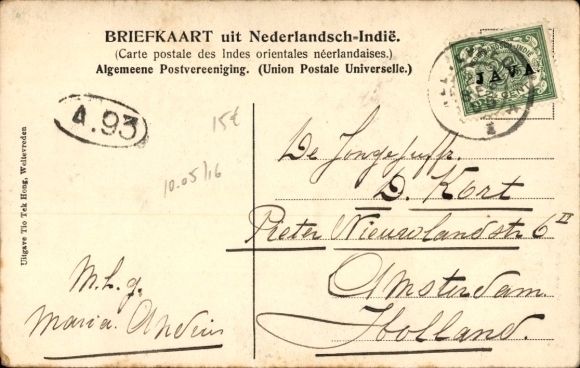 BRIEFKAART uit Nederlandsch-Indië.
(Carte postale des Indes orientales néerlandaises.)
Algemeene Postvereeniging. (Union Postale Universelle.)
JAVA.
A.93
15€
10.05/16
Uitgave Tio Tek Hong, Weltevreden
De Jongejuffr.
D. Kort
Pieter Nieuwlandstr 6 II
Amsterdam
Holland.
M.h.g.
Maria